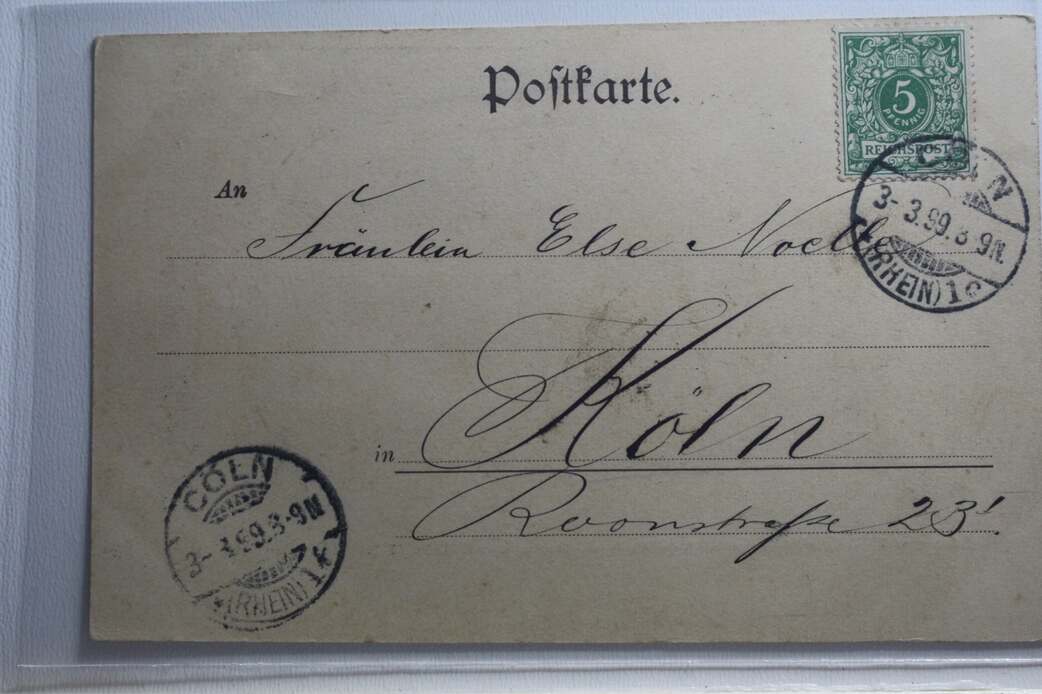 Postkarte.
5
PFENNIG
REICHSPOST
An
Fräulein Else Noelle
in Köln
Roonstraße 23¹
CÖLN
3-3.99.8-9N.
(RHEIN) 1c
CÖLN
3-3.99.8-9N
(RHEIN)